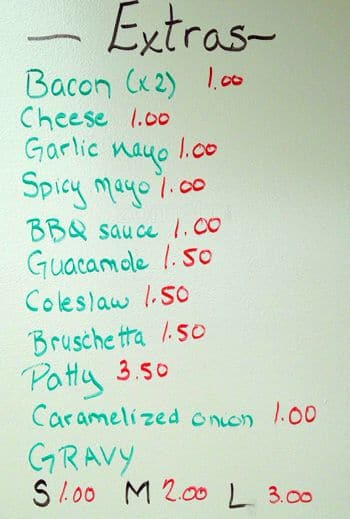 — Extras~
Bacon (x2) 1.00
Cheese 1.00
Garlic mayo 1.00
Spicy mayo 1.00
BBQ sauce 1.00
Guacamole 1.50
Coleslaw 1.50
Bruschetta 1.50
Patty 3.50
Caramelized onion 1.00
GRAVY
S 1.00 M 2.00 L 3.00